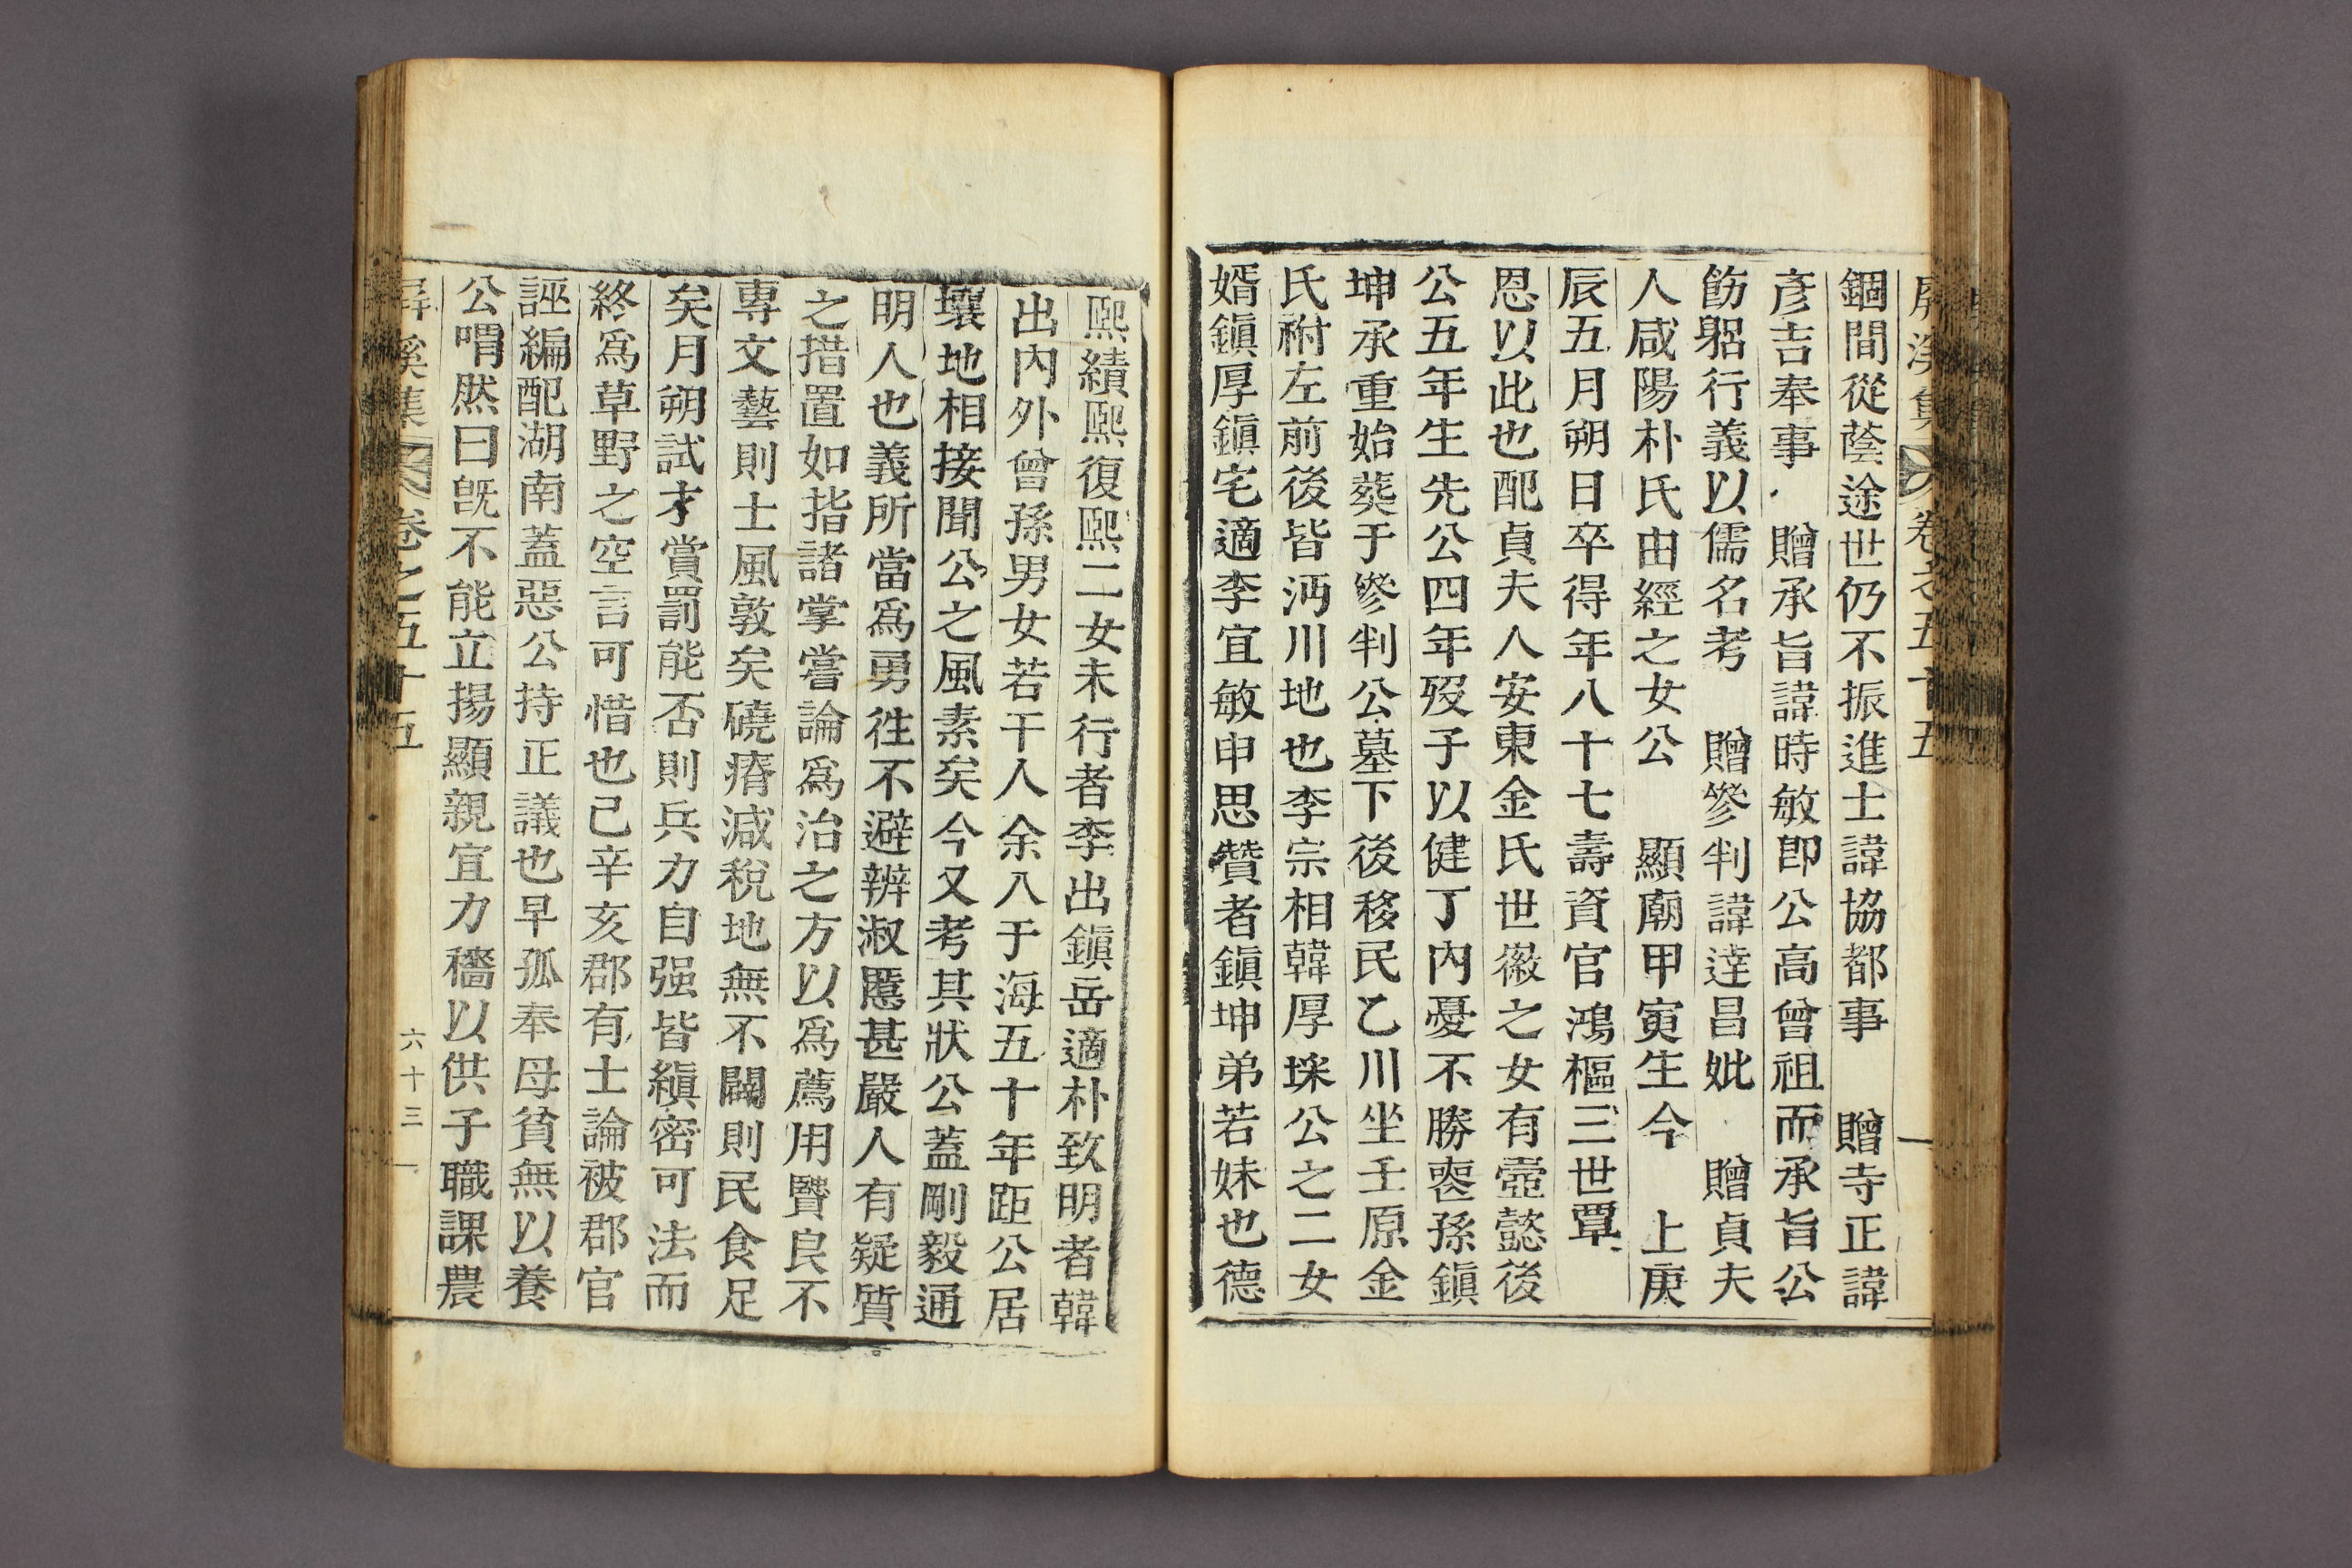 屛溪集 卷之五十五
錮間從蔭途世仍不振進士諱協都事 贈寺正諱
彥吉奉事 贈承旨諱時敏卽公高曾祖而承旨公
飭躬行義以儒名考 贈參判諱達昌妣 贈貞夫
人咸陽朴氏由經之女公 顯廟甲寅生今 上庚
辰五月朔日卒得年八十七壽資官鴻樞三世覃
恩以此也配貞夫人安東金氏世徽之女有壼懿後
公五年生先公四年歿子以健丁內憂不勝喪孫鎭
坤承重始葬于參判公墓下後移民乙川坐壬原金
氏祔左前後皆沔川地也李宗相韓厚埰公之二女
婿鎭厚鎭宅適李宜敏申思贊者鎭坤弟若妹也德
熙績熙復熙二女未行者李出鎭岳適朴致明者韓
出內外曾孫男女若干人余入于海五十年距公居
壤地相接聞公之風素矣今又考其狀公蓋剛毅通
明人也義所當爲勇往不避辨淑慝甚嚴人有疑質
之措置如指諸掌嘗論爲治之方以爲薦用賢良不
專文藝則士風敦矣磽瘠減稅地無不闢則民食足
矣月朔試才賞罰能否則兵力自强皆縝密可法而
終爲草野之空言可惜也己辛亥郡有士論被郡官
誣編配湖南蓋惡公持正議也早孤奉母貧無以養
公喟然曰旣不能立揚顯親宜力穡以供子職課農
屛溪集 卷之五十五 六十三